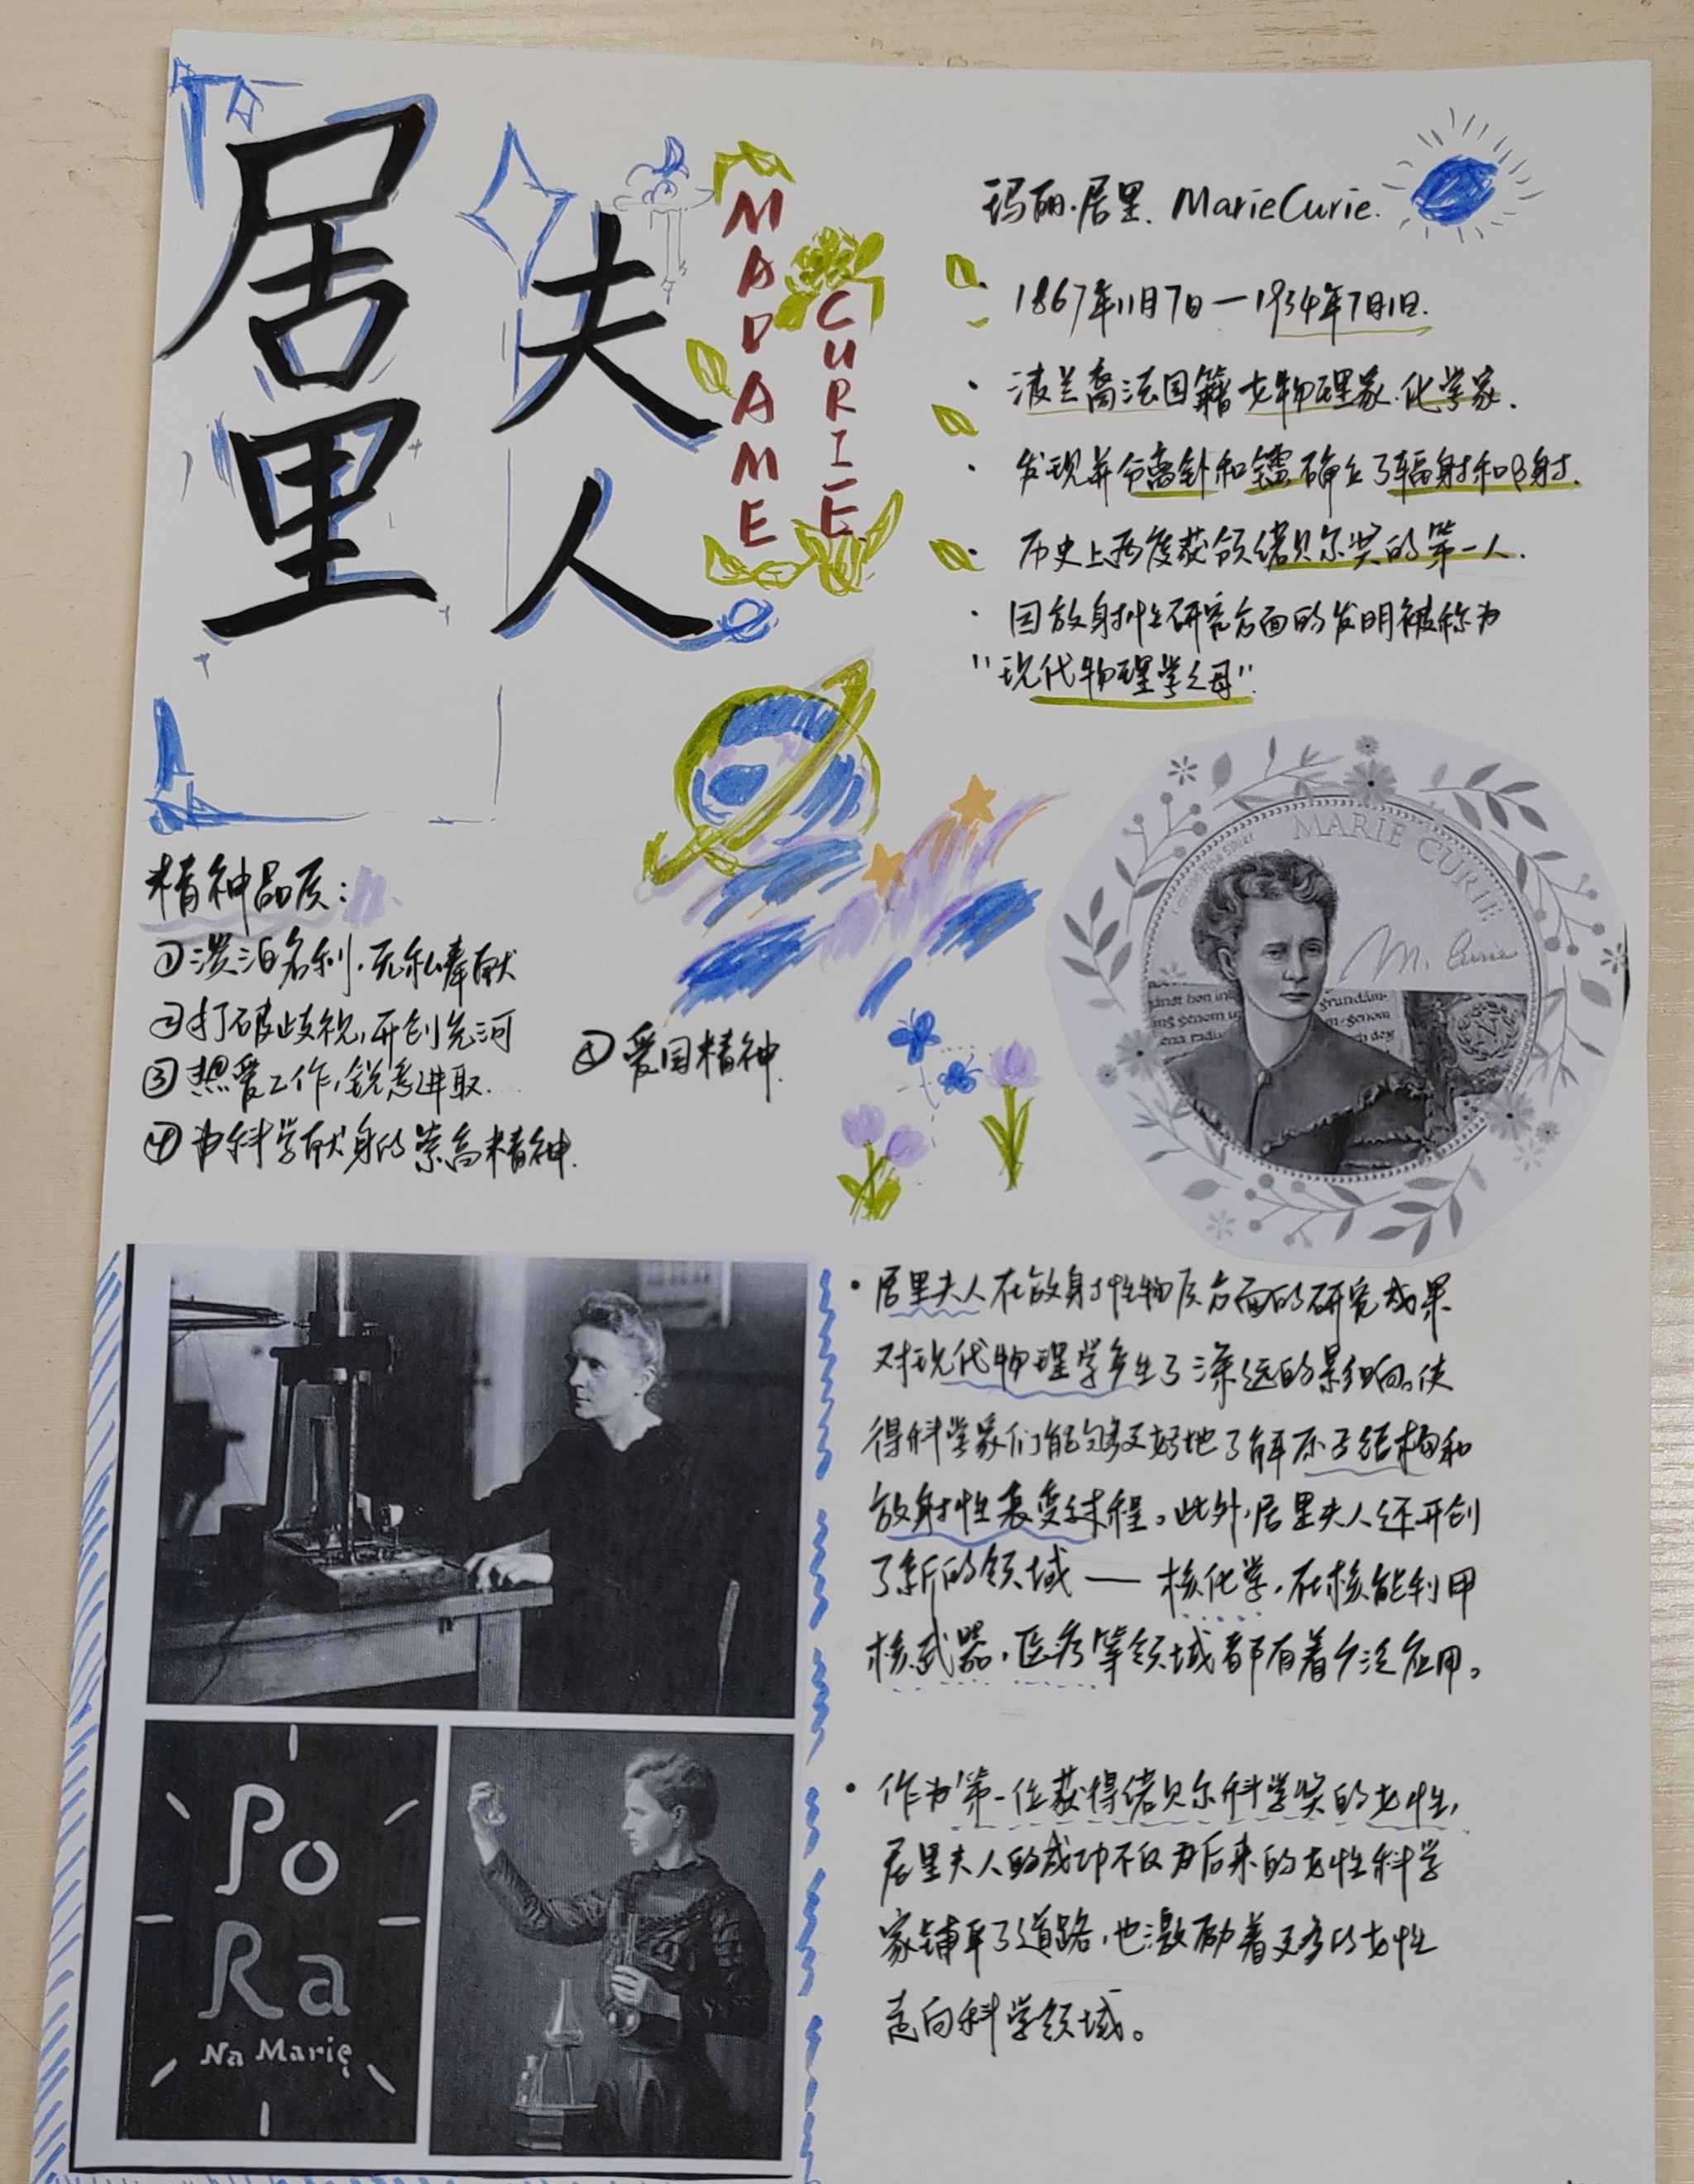 居里
夫人
MADAME
CURIE
玛丽·居里. Marie Curie.
1867年11月7日—1934年7月1日.
波兰裔法国籍女物理家.化学家.
发现并分离钋和镭确立了辐射和β射.
历史上两度获领诺贝尔奖的第一人.
因放射性研究方面的发明被称为
"现代物理学之母"
MARIE CURIE
M. Curie
精神品质:
①淡泊名利,无私奉献
②打破歧视,开创先河
③热爱工作,锐意进取.
④为科学献身的崇高精神.
⑤爱国精神.
·居里夫人在放射性物质方面的研究成果
对现代物理学产生了深远的影响。使
得科学家们能够更好地了解原子结构和
放射性衰变过程。此外,居里夫人还开创
了新的领域——核化学,在核能利用
核武器,医疗等领域都有着广泛应用。
·作为第一位获得诺贝尔科学奖的女性,
居里夫人的成功不仅为后来的女性科学
家铺平了道路,也激励着更多的女性
志向科学领域。
Po
Ra
Na Marię